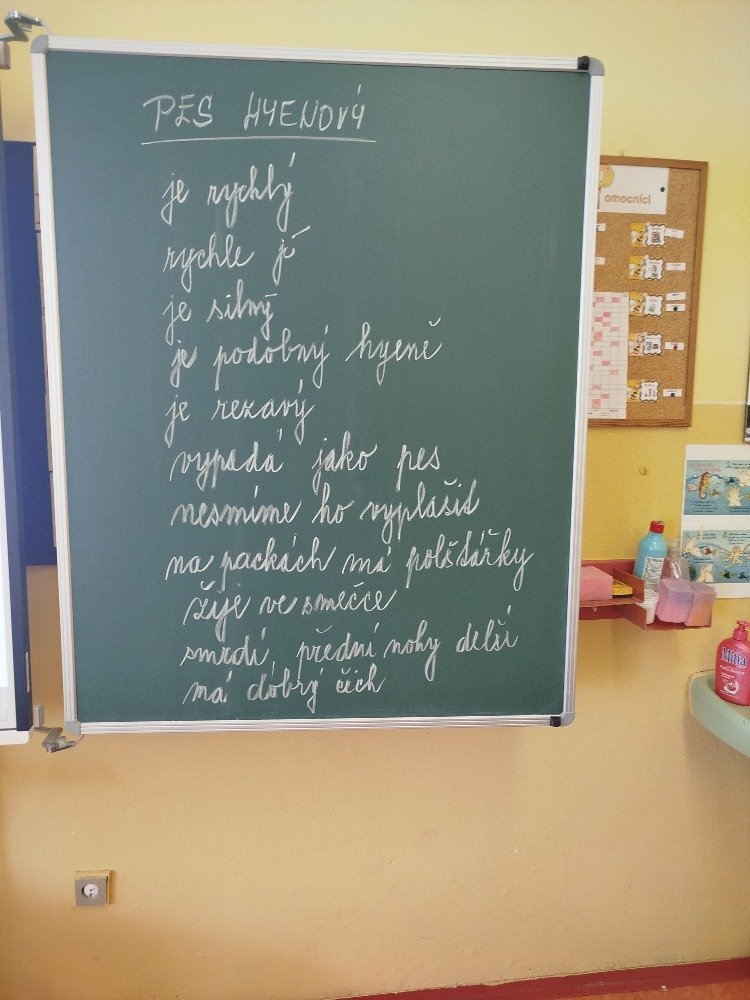 PES HYENOVÝ
je rychlý
rychle jí
je silný
je podobný hyeně
je rezavý
vypadá jako pes
nesmíme ho vyplašit
na packách má polštářky
žije ve smečce
smrdí, přední nohy delší
má dobrý čich
omocníci
Mitia